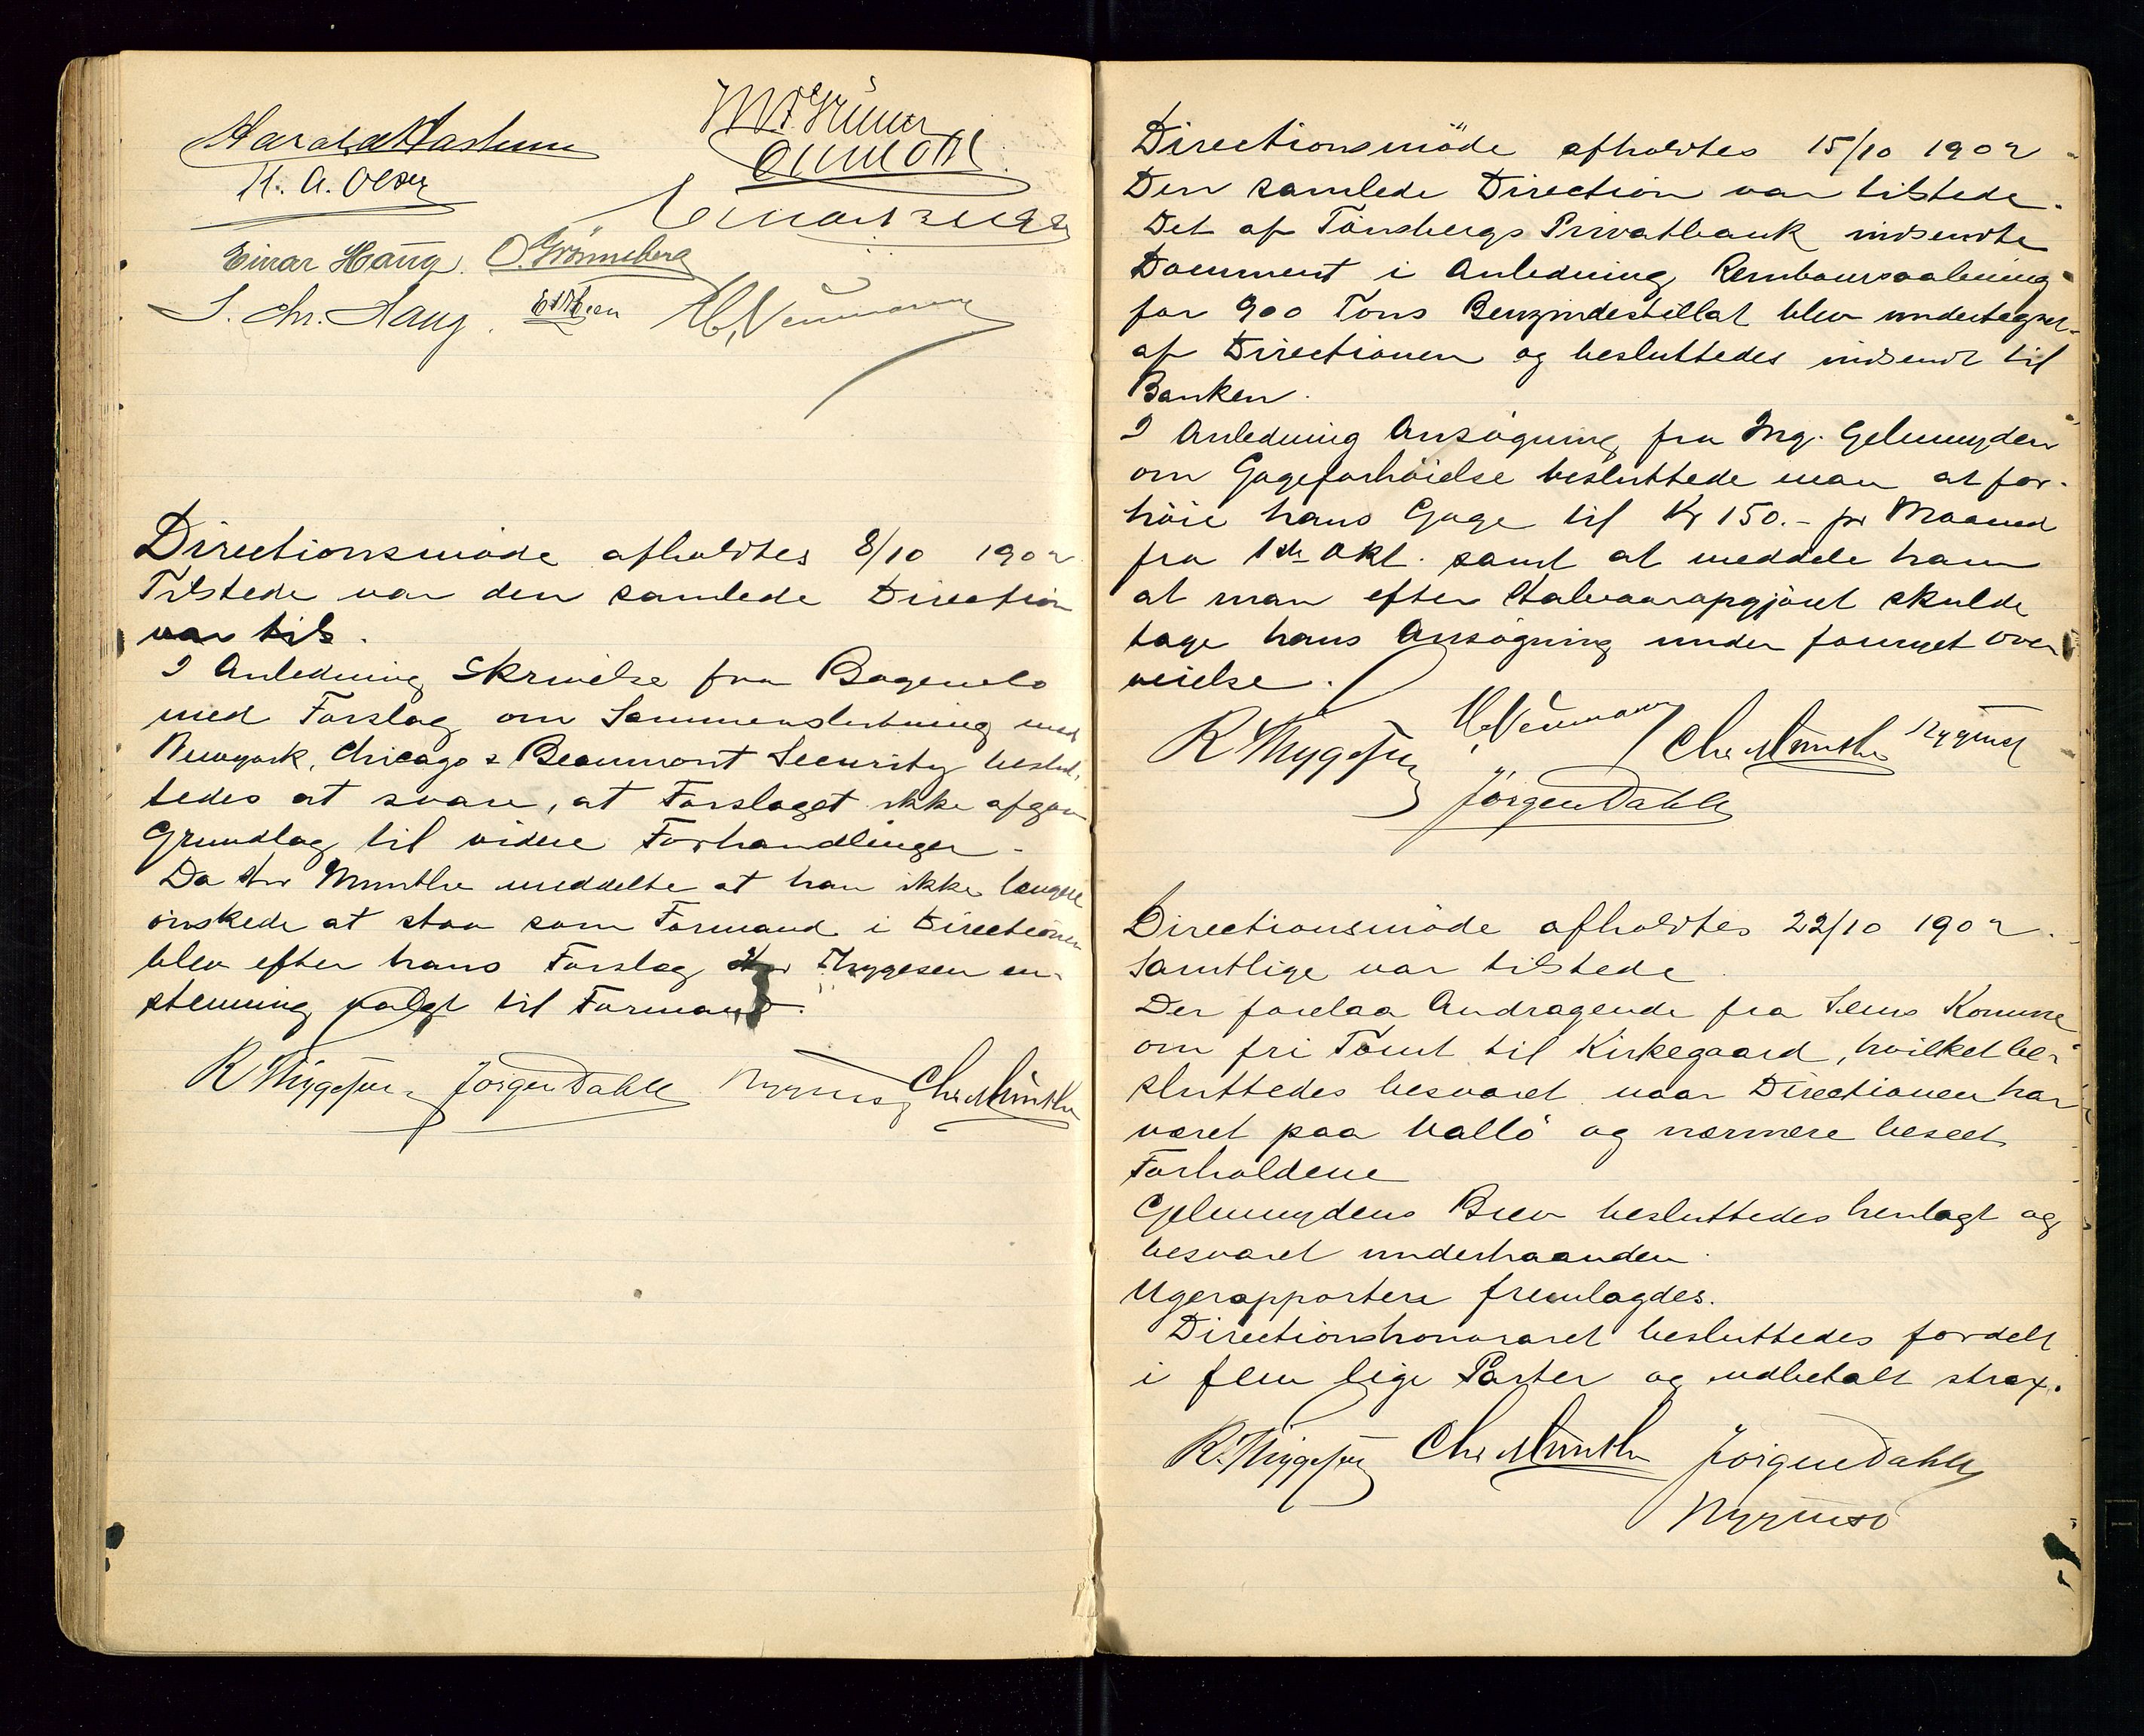 H. A. Olsen
Einar Haug. O. Grönneberg
S. Chr. Haug. H. Neumann
Directionsmöde afholdtes 8/10 1902
Tilstede var den samlede Direction
var tils.
I Anledning Skrivelse fra
med Forslag om Sammenslutning med
Newyork, Chicago & Beaumont Security beslut-
tedes at svare, at Forslaget ikke afgav
Grundlag til videre Forhandlinger.
Da Hr Munthe meddelte at han ikke længere
önskede at staa som Formand i Directionen
blev efter hans Forslag Hr Thygesen en-
stemmig valgt til Formand.
R Thygesen Jörgen Dahll Chr Munthe
Directionsmöde afholdtes 15/10 1902
Den samlede Direction var tilstede.
Det af Tönsbergs Privatbank indsendte
Document i Anledning Remboursaabning
for 900 Tons Benzindestillat blev undertegnet
af Directionen og besluttedes indsendt til
Banken.
I Anledning Ansögning fra Ing. Gelmuyden
om Gageforhöielse besluttede man at for-
höie hans Gage til Kr 150.- pr Maaned
fra 1ste Okt. samt at meddele ham
at man efter Halvaarsopgjöret skulde
tage hans Ansögning under fornyet Over
veielse.
R Thygesen H. Neumann Chr Munthe
Jörgen Dahll
Directionsmöde afholdtes 22/10 1902.
Samtlige var tilstede.
Der forelaa Andragende fra Sems Komune
om fri Tomt til Kirkegaard, hvilket be-
sluttedes besvaret naar Directionen har
været paa Vallö og nærmere beseet
Forholdene
Gelmuydens Brev besluttedes henlagt og
besvaret underhaanden.
Ugerapportere fremlagdes.
Directionshonoraret besluttedes fordelt
i fem lige Parter og udbetalt strax.
R. Thygesen Chr Munthe Jörgen Dahll